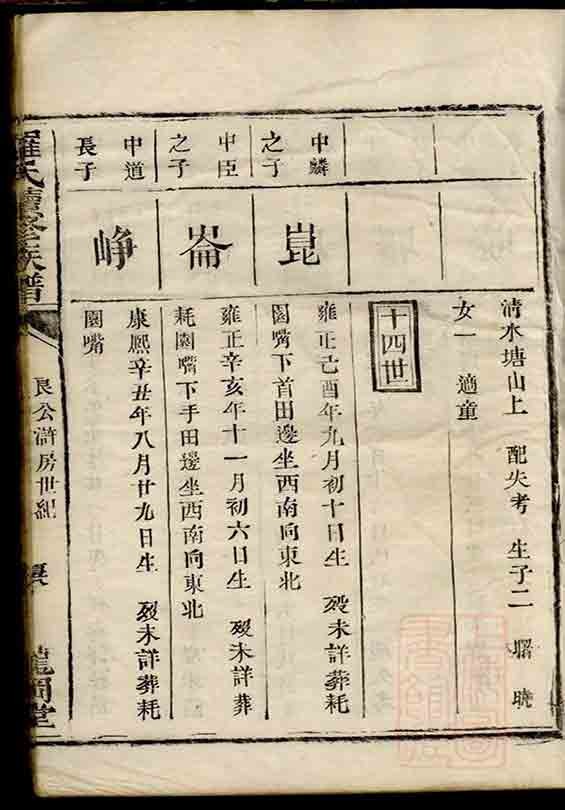 清水塘山上　配失考　生子二　曙　曉
女一　適童
十四世
中麟
之子
崑
雍正己酉年九月初十日生　歿未詳葬耗
園嘴下首田邊坐西南向東北
中臣
之子
崙
雍正辛亥年十一月初六日生　歿未詳葬
耗園嘴下手田邊坐西南向東北
中道
長子
崢
康熙辛丑年八月廿九日生　歿未詳葬耗
園嘴
羅氏續修族譜
良公滸房世紀